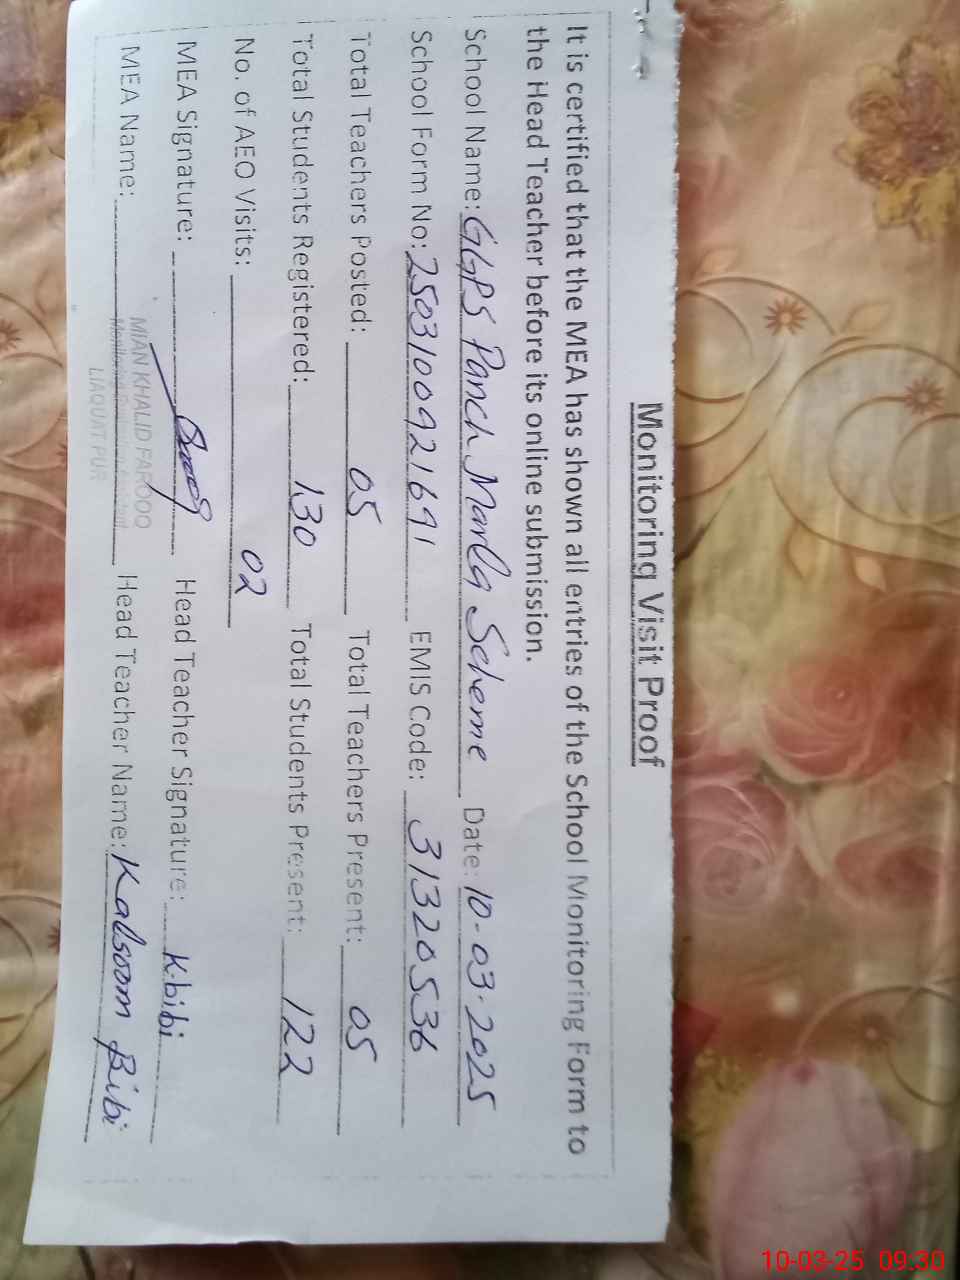 Monitoring Visit Proof
It is certified that the MEA has shown all entries of the School Monitoring Form to
the Head Teacher before its online submission.
School Name: GGPS Panch Marla Scheme Date: 10-03-2025
School Form No: 2503100921691 EMIS Code: 31320536
Total Teachers Posted: 05 Total Teachers Present: 05
Total Students Registered: 130 Total Students Present: 122
No. of AEO Visits: 02
MEA Signature: Head Teacher Signature: K.bibi
MEA Name: MIAN KHALID FAROOQ Head Teacher Name: Kalsoom Bibi
LIAQUAT PUR
10-03-25 09:30